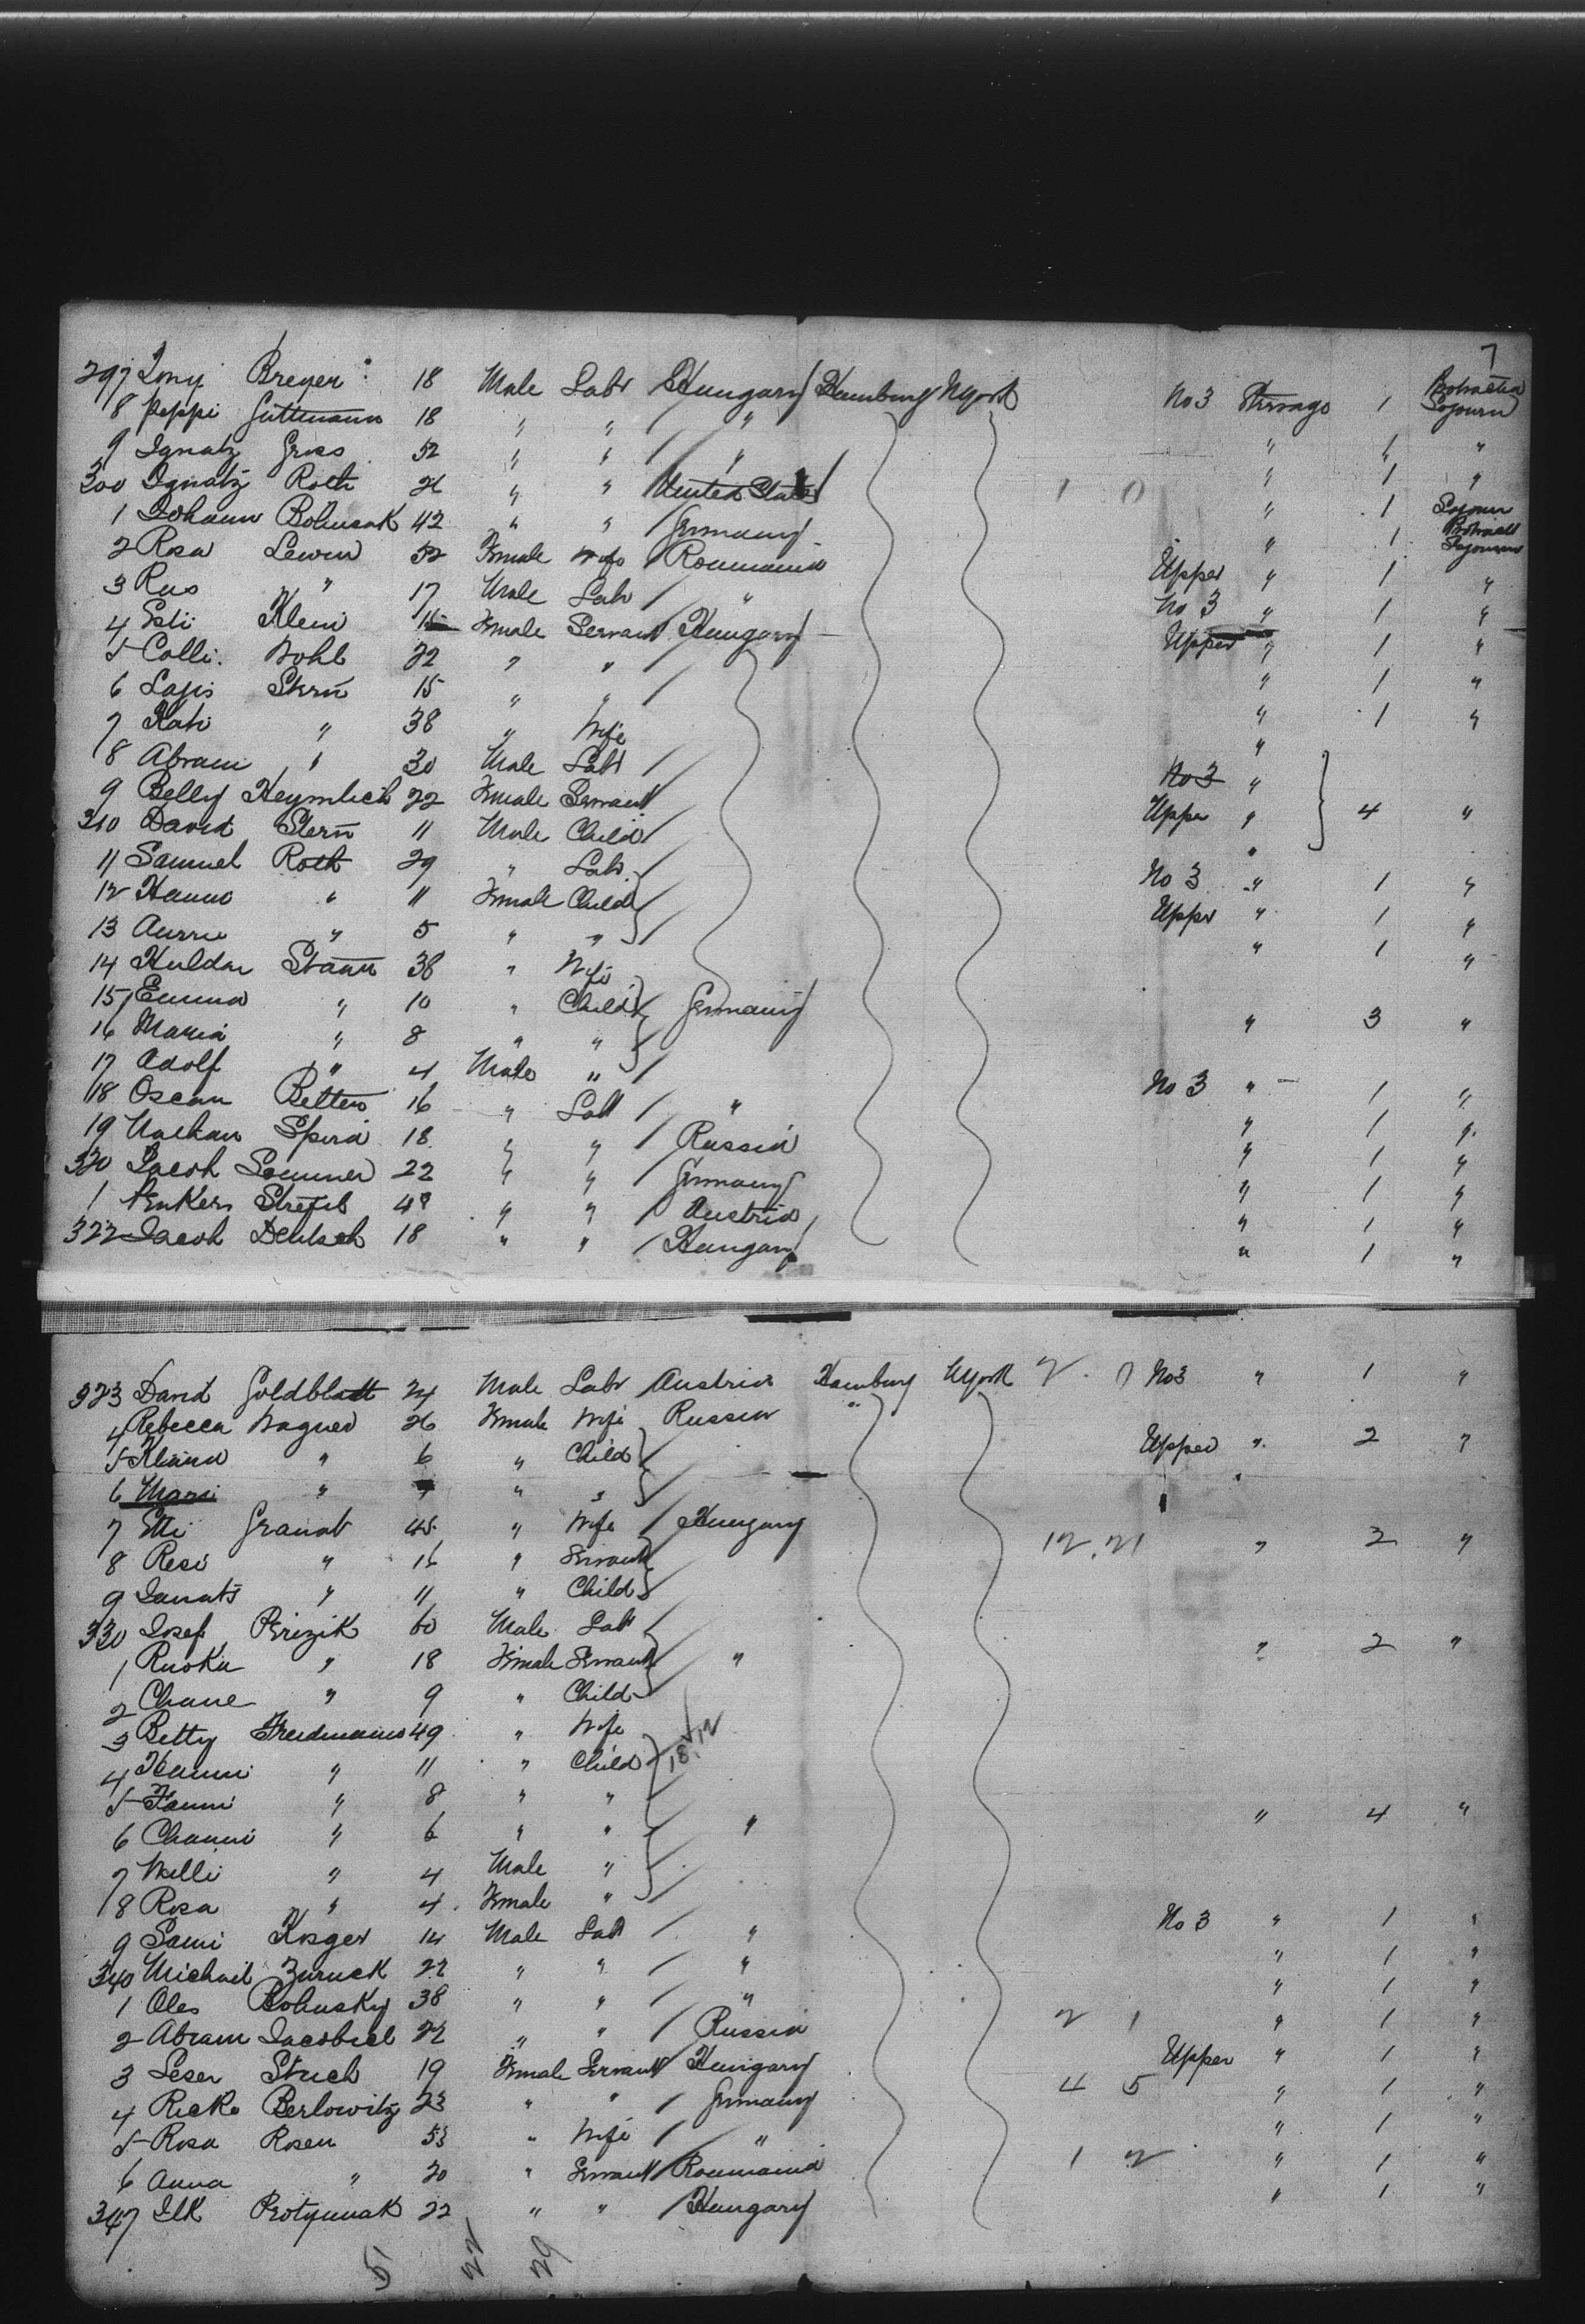 7
297 Tony Breyer 18 Male Labr Hungary Hamburg NYork No 3 Steerage 1 Protracted Sojourn
8 Peppi Guttmann 18 " " / " " " "
9 Ignatz Gross 52 " " / " " 1 "
300 Ignatz Roth 26 " " / United States 1 0 " 1 Sojourn
1 Johann Bohusak 42 " " / Germany " 1 Protracted Sojourn
2 Rosa Lewin 52 Female Wife Roumania Upper " 1 "
3 " 17 Male Labr / " No 3 " 1 "
4 Esti Klein Female Servant Hungary Upper " 1 "
5 Colli Wohl 22 " " / " 1 "
6 Stern 15 " " / " 1 "
7 Kati " 38 " Wife "
8 Abram " 30 Male Labr / No 3 "
9 Belly Heymlich 22 Female Servant Upper " 4 "
310 David Stern 11 Male Child / "
11 Samuel Roth 29 " Labr / No 3 " 1 "
12 Hanno " 11 Female Child / Upper " 1 "
13 " 5 " " / " 1 "
14 Huldar Stann 38 " Wife
15 Emma " 10 " Child / Germany " 3 "
16 Maria " 8 " "
17 Adolf " 4 Male " /
18 Oscar Betters 16 " Labr / " No 3 " 1 "
19 Nathan Spira 18 " " / Russia " 1 "
320 Jacob Sommer 22 " " Germany " 1 "
1 Strefel 48 " " / Austria " 1 "
322 Jacob Deutsch 18 " " / Hungary " 1 "
" 1 "
323 David Goldblatt 24 Male Labr / Austria Hamburg NYork 2 No3 " 1 "
4 Rebecca Wagner 26 Female Wife Russia "
5 " 6 " Child / Upper " 2 "
6 Mari " " " "
7 Etti Granat 45 " Wife / Hungary 12.21 " 2 "
8 Resi " 16 " Servant
9 " 11 " Child
330 Josef Prizik 60 Male Labr / " 2 "
1 " 18 Female Servant "
2 Chane " 9 " Child
3 Betty Friedmann 49 " Wife
4 Hanni " 11 " Child 18.12
5 Fanni " 8 " " " 4 "
6 Channi " 6 " " / "
7 Willi " 4 Male "
8 Rosa " 4 Female " No 3 " 1 "
9 Sami Kosger 14 Male Labr / " " 1 "
340 Michail Zuruck 22 " " / " " 1 "
1 Oles Bohusky 38 " " / " 2 1 " 1 "
2 Abram Jacobiel 22 " " / Russia Upper " 1 "
3 Leser Stuch 19 Female Servant Hungary 4 5 " 1 "
4 Ricke Berlowitz 23 " " / Germany " 1 "
5 Rosa Rosen 53 " Wife / " 1 2 " 1 "
6 Anna " 20 " Servant / Roumania " 1 "
347 Ilk Protyunak 22 " " / Hungary
5 22 29